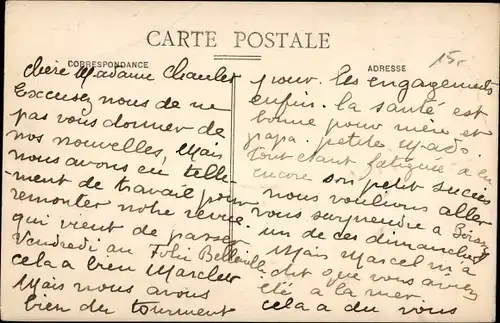 CARTE POSTALE
CORRESPONDANCE
ADRESSE
Chère Madame
Excusez nous de ne
pas vous donner de
nos nouvelles, Mais
nous avons eu telle-
ment de travail pour
remonter notre revue
qui vient de passer
Vendredi au Folie Belleville
cela a bien Marcher
Mais nous avons
bien du tourment
pour les engagements
enfin. la santé est
bonne pour mère et
papa. petite Mado.
tout etant fatiguée a
encore son petit succès
nous voulions aller
vous surprendre a
un de ces dimanches
Mais Marcel m'a
dit que vous aviez
été a la mer
cela a du vous